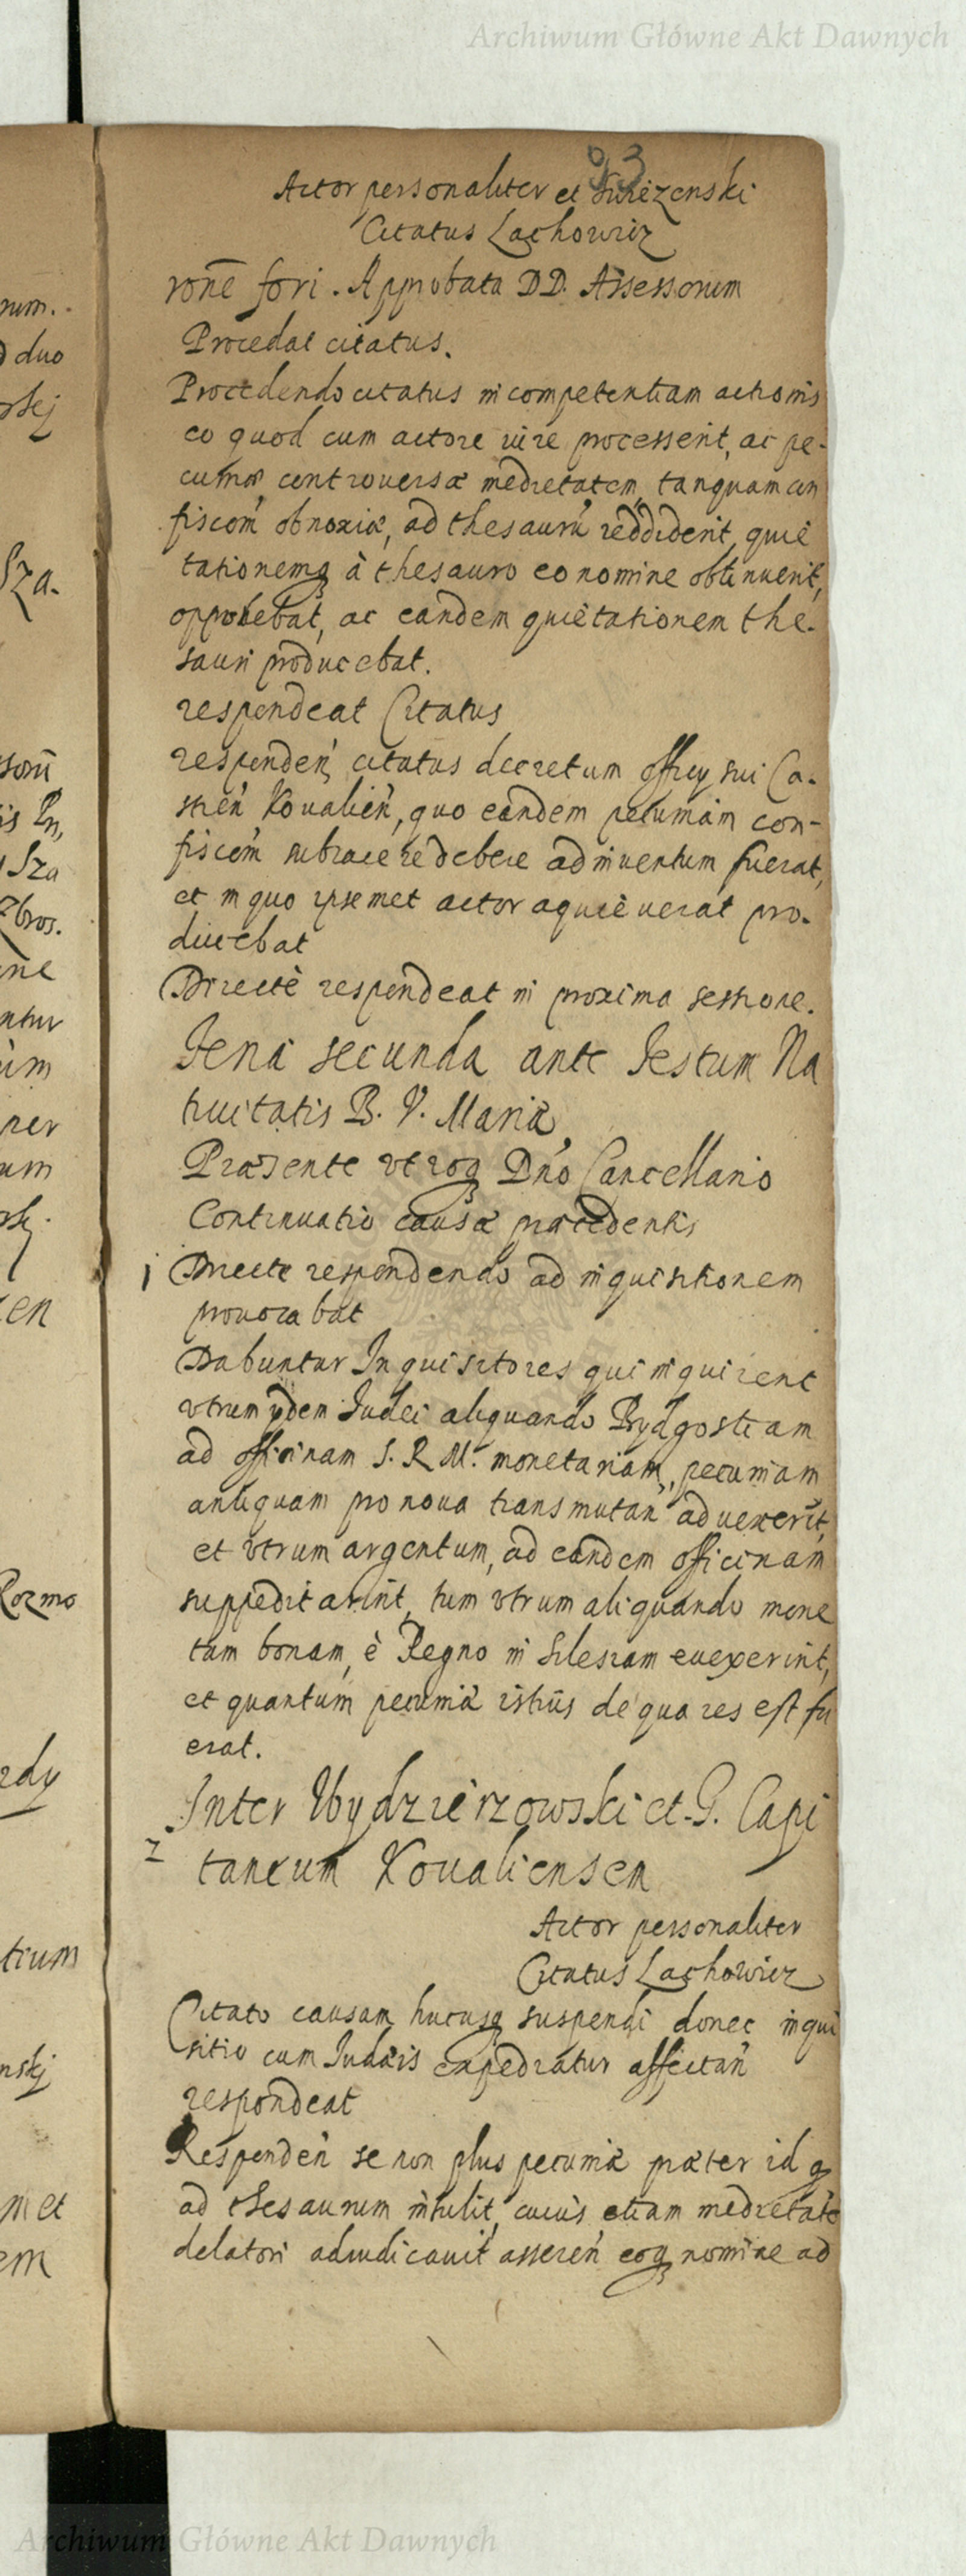 Archiwum Główne Akt Dawnych
93
Actor personaliter et
Citatus Lachowicz
rone fori. Approbata DD. Assessorum
Procedat citatus.
Procedendo citatus incompetentiam actionis
eo quod cum actore iure processerit, ac pe-
cuniæ controversæ medietatem tanquam con
fisconi obnoxiæ, ad thesauru reddiderit, quie
tationemq à thesauro eo nomine obtinuerit,
opponebat, ac eandem quietationem the-
sauri producebat.
respondeat Citatus
responden citatus decretum officy sui Ca-
stren Kovalien, quo eandem pecuniam con-
fisconi subiacere debere adinventum fuerat,
et in quo ipsemet actor aquieverat pro-
ducebat
Directè respondeat in proxima sessione.
Feria secunda ante Festum Na
tivitatis B. V. Mariæ
Præsente vtroq Dno Cancellario
Continuatio causæ præcedentis
1 Directe respondendo ad inquisitionem
provocabat
Dabuntur Inquisitores qui inquirent
vtrum ydem Iudei aliquando Bydgostiam
ad officinam S. R. M. monetariam, pecuniam
antiquam pro nova transmutan advexerit,
et vtrum argentum, ad eandem officinam
suppeditarint, tum vtrum aliquando mone
tam bonam, è Regno in Silesiam evexerint,
et quantum pecuniæ istius de qua res est fu
erat.
Inter Wydzierzowski et G. Capi
2
taneum Kovaliensem
Actor personaliter
Citatus Lachowicz
Citato causam hucusq suspendi donec inqui
sitio cum Iudæis expediatur affectan
respondeat
Responden se non plus pecuniæ præter id q
ad thesaurum intulit, cuius etiam medietate
delatori adiudicavit asseren eoq nomine ad
num.
duo
rskj
Sza.
ssorū
is
Sza
zbros.
ntur
per
Rozmo
rdy
nskj
met
em
Archiwum Główne Akt Dawnych